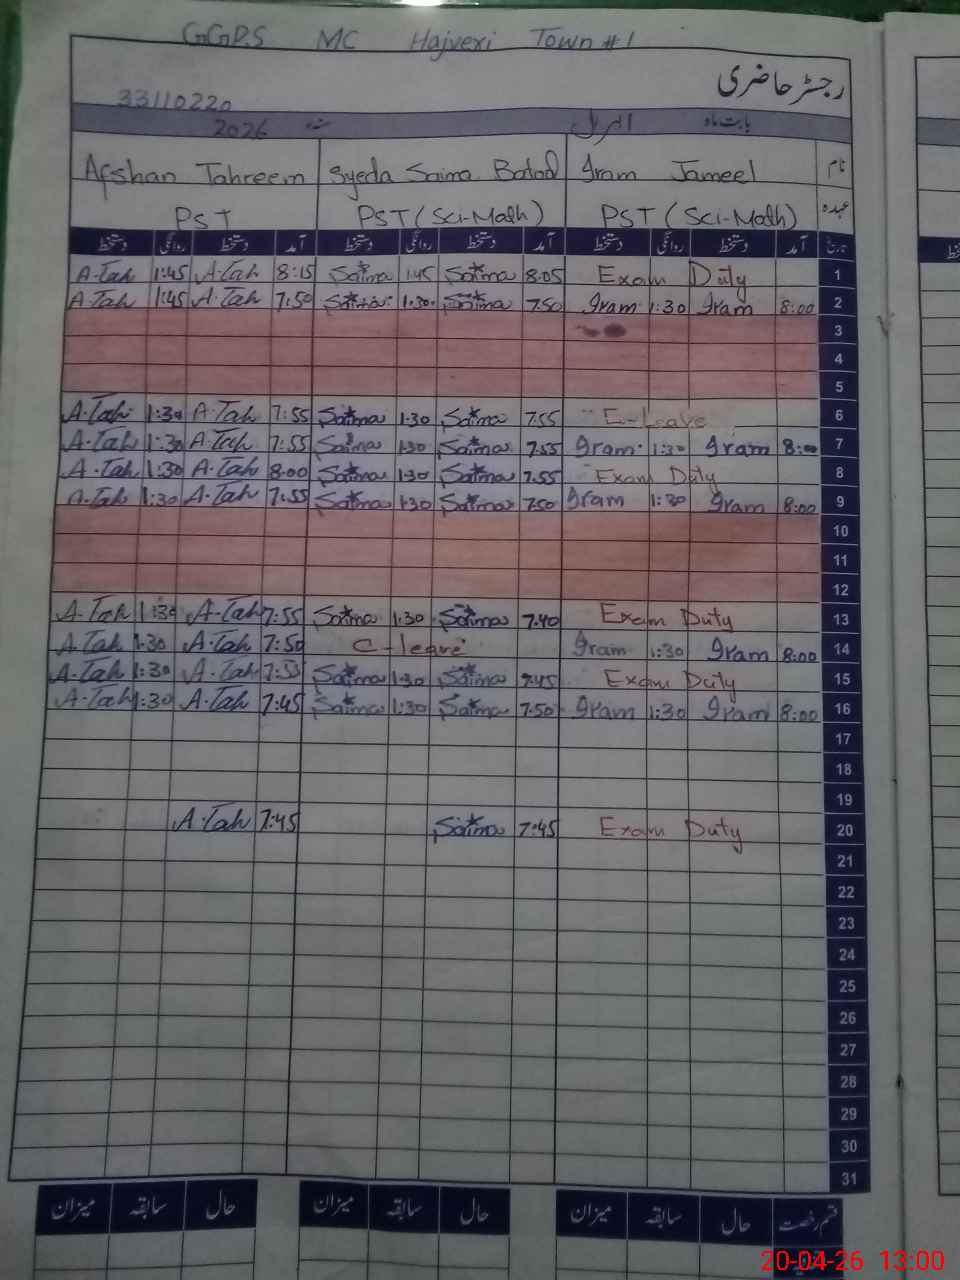 GGPS MC Hajveri Town #1
رجسٹر حاضری
33110220
بابت ماہ اپریل سنہ 2026
نام Iram Jameel Syeda Saima Batool Afshan Tahreem
عہدہ PST (Sci-Math) PST (Sci-Math) PST
تاریخ آمد دستخط روانگی دستخط آمد دستخط روانگی دستخط آمد دستخط روانگی دستخط
A-Tah 1:45 A-Tah 8:15 Saima 1:45 Saima 8:05 Exam Duty 1
A-Tah 1:45 A-Tah 7:50 Saima 1:30 Saima 7:50 Iram 1:30 Iram 8:00 2
3
4
5
A-Tah 1:30 A-Tah 7:55 Saima 1:30 Saima 7:55 Leave 6
A-Tah 1:30 A-Tah 7:55 Saima 1:30 Saima 7:55 Iram 1:30 Iram 8:00 7
A-Tah 1:30 A-Tah 8:00 Saima 1:30 Saima 7:55 Exam Duty 8
A-Tah 1:30 A-Tah 7:55 Saima 1:30 Saima 7:50 Iram 1:30 Iram 8:00 9
10
11
12
A-Tah 1:30 A-Tah 7:55 Saima 1:30 Saima 7:40 Exam Duty 13
A-Tah 1:30 A-Tah 7:50 C-leave Iram 1:30 Iram 8:00 14
A-Tah 1:30 A-Tah 7:55 Saima 1:30 Saima 7:45 Exam Duty 15
A-Tah 1:30 A-Tah 7:45 Saima 1:30 Saima 7:50 Iram 1:30 Iram 8:00 16
17
18
19
A-Tah 7:45 Saima 7:45 Exam Duty 20
21
22
23
24
25
26
27
28
29
30
31
قسم رخصت حال سابقہ میزان حال سابقہ میزان حال سابقہ میزان
20-04-26 13:00